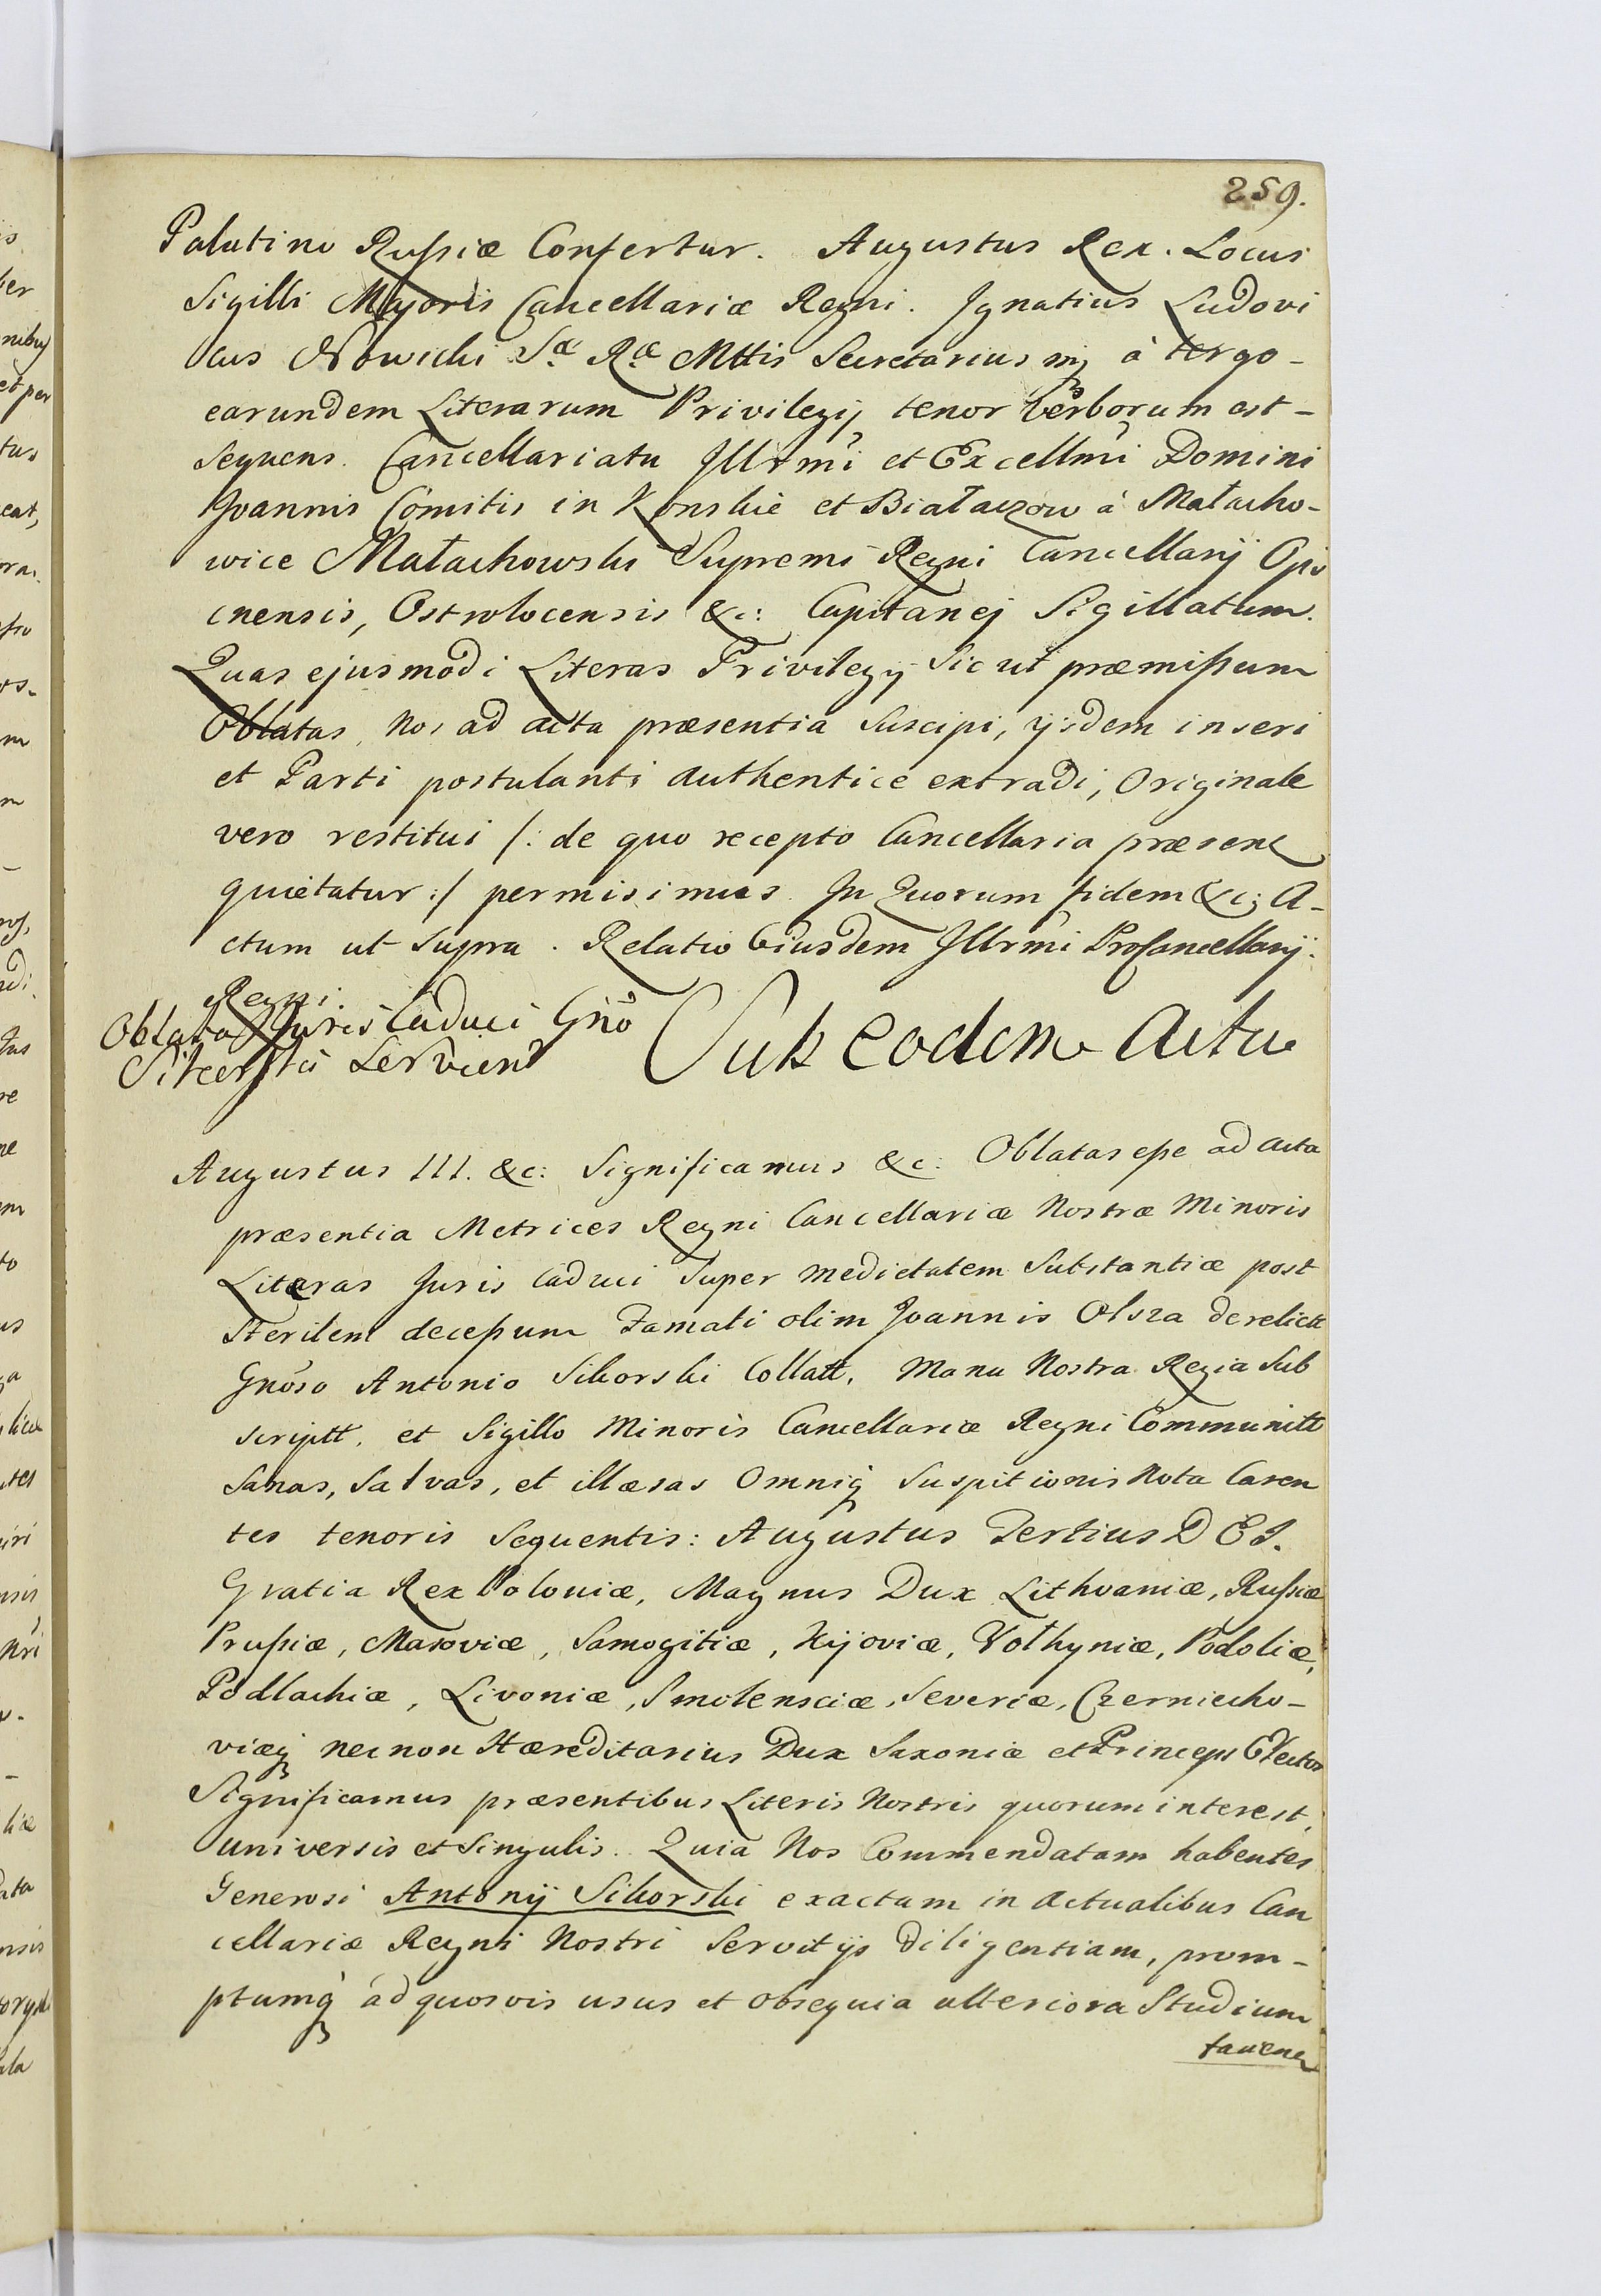 259.
Palatino Rufsiæ Confertur. Augustus Rex. Locus
Sigilli Majoris Cancellariæ Regni. Jgnatius Ludovi
cus Nowicki Sæ Ræ Mttis Secretarius mp à tergo -
earundem Literarum Privilegij tenor verborum est -
Sequens. Cancellariatu Jllrmi et Excellmi Domini
Joannis Comitis in Konskie et Białaczow à Małacho-
wice Małachowski Supremi Regni Cancellarij Opo
cnensis, Ostrolocensis &c: Capitanej Sigillatum.
Quas ejusmodi Literas Privilegij Sic ut præmifsum
Oblatas, Nos ad acta præsentia Suscipi, ijsdem inseri
et Parti postulanti authentice extradi, Originale
vero restitui /: de quo recepto Cancellaria præsens
quietatur :/ permisimus. Jn Quorum fidem &c: A-
ctum ut Supra. Relatio Eiusdem Jllrmi ProCancellarij.
Regni.
Oblata Juris Caduci Gño
Sikorski Servient
Sub eodem Actu
Augustus III. &c: Significamus &c: Oblatas efse ad acta
præsentia Metrices Regni Cancellariæ Nostræ Minoris
Literas Juris Caduci Super medietatem Substantiæ post
Sterilem decefsum Famati olim Joannis Olsza derelictt
Gnoso Antonio Sikorski Collatt, Manu Nostra Regia Sub
scriptt. et Sigillo Minoris Cancellariæ Regni Communitt
Sanas, Salvas, et illæsas Omniq Suspitionis Nota Caren
tes tenoris Sequentis: Augustus Tertius DEI.
Gratia Rex Poloniæ, Magnus Dux Lithvaniæ, Rufsiæ
Prufsiæ, Masoviæ, Samogitiæ, Kijoviæ, Volhyniæ, Podoliæ,
Podlachiæ, Livoniæ, Smolensciæ, Severiæ, Czerniecho-
viæq necnon Hæreditarius Dux Saxoniæ et Princeps Elector
Significamus præsentibus Literis Nostris quorum interest,
universis et Singulis. Quia Nos Commendatam habentes
Generosi Antonij Sikorski exactam in Actualibus Can
cellariæ Regni Nostri Servitijs diligentiam, prom-
ptumq ad quosvis usus et obsequia ulteriora Studium